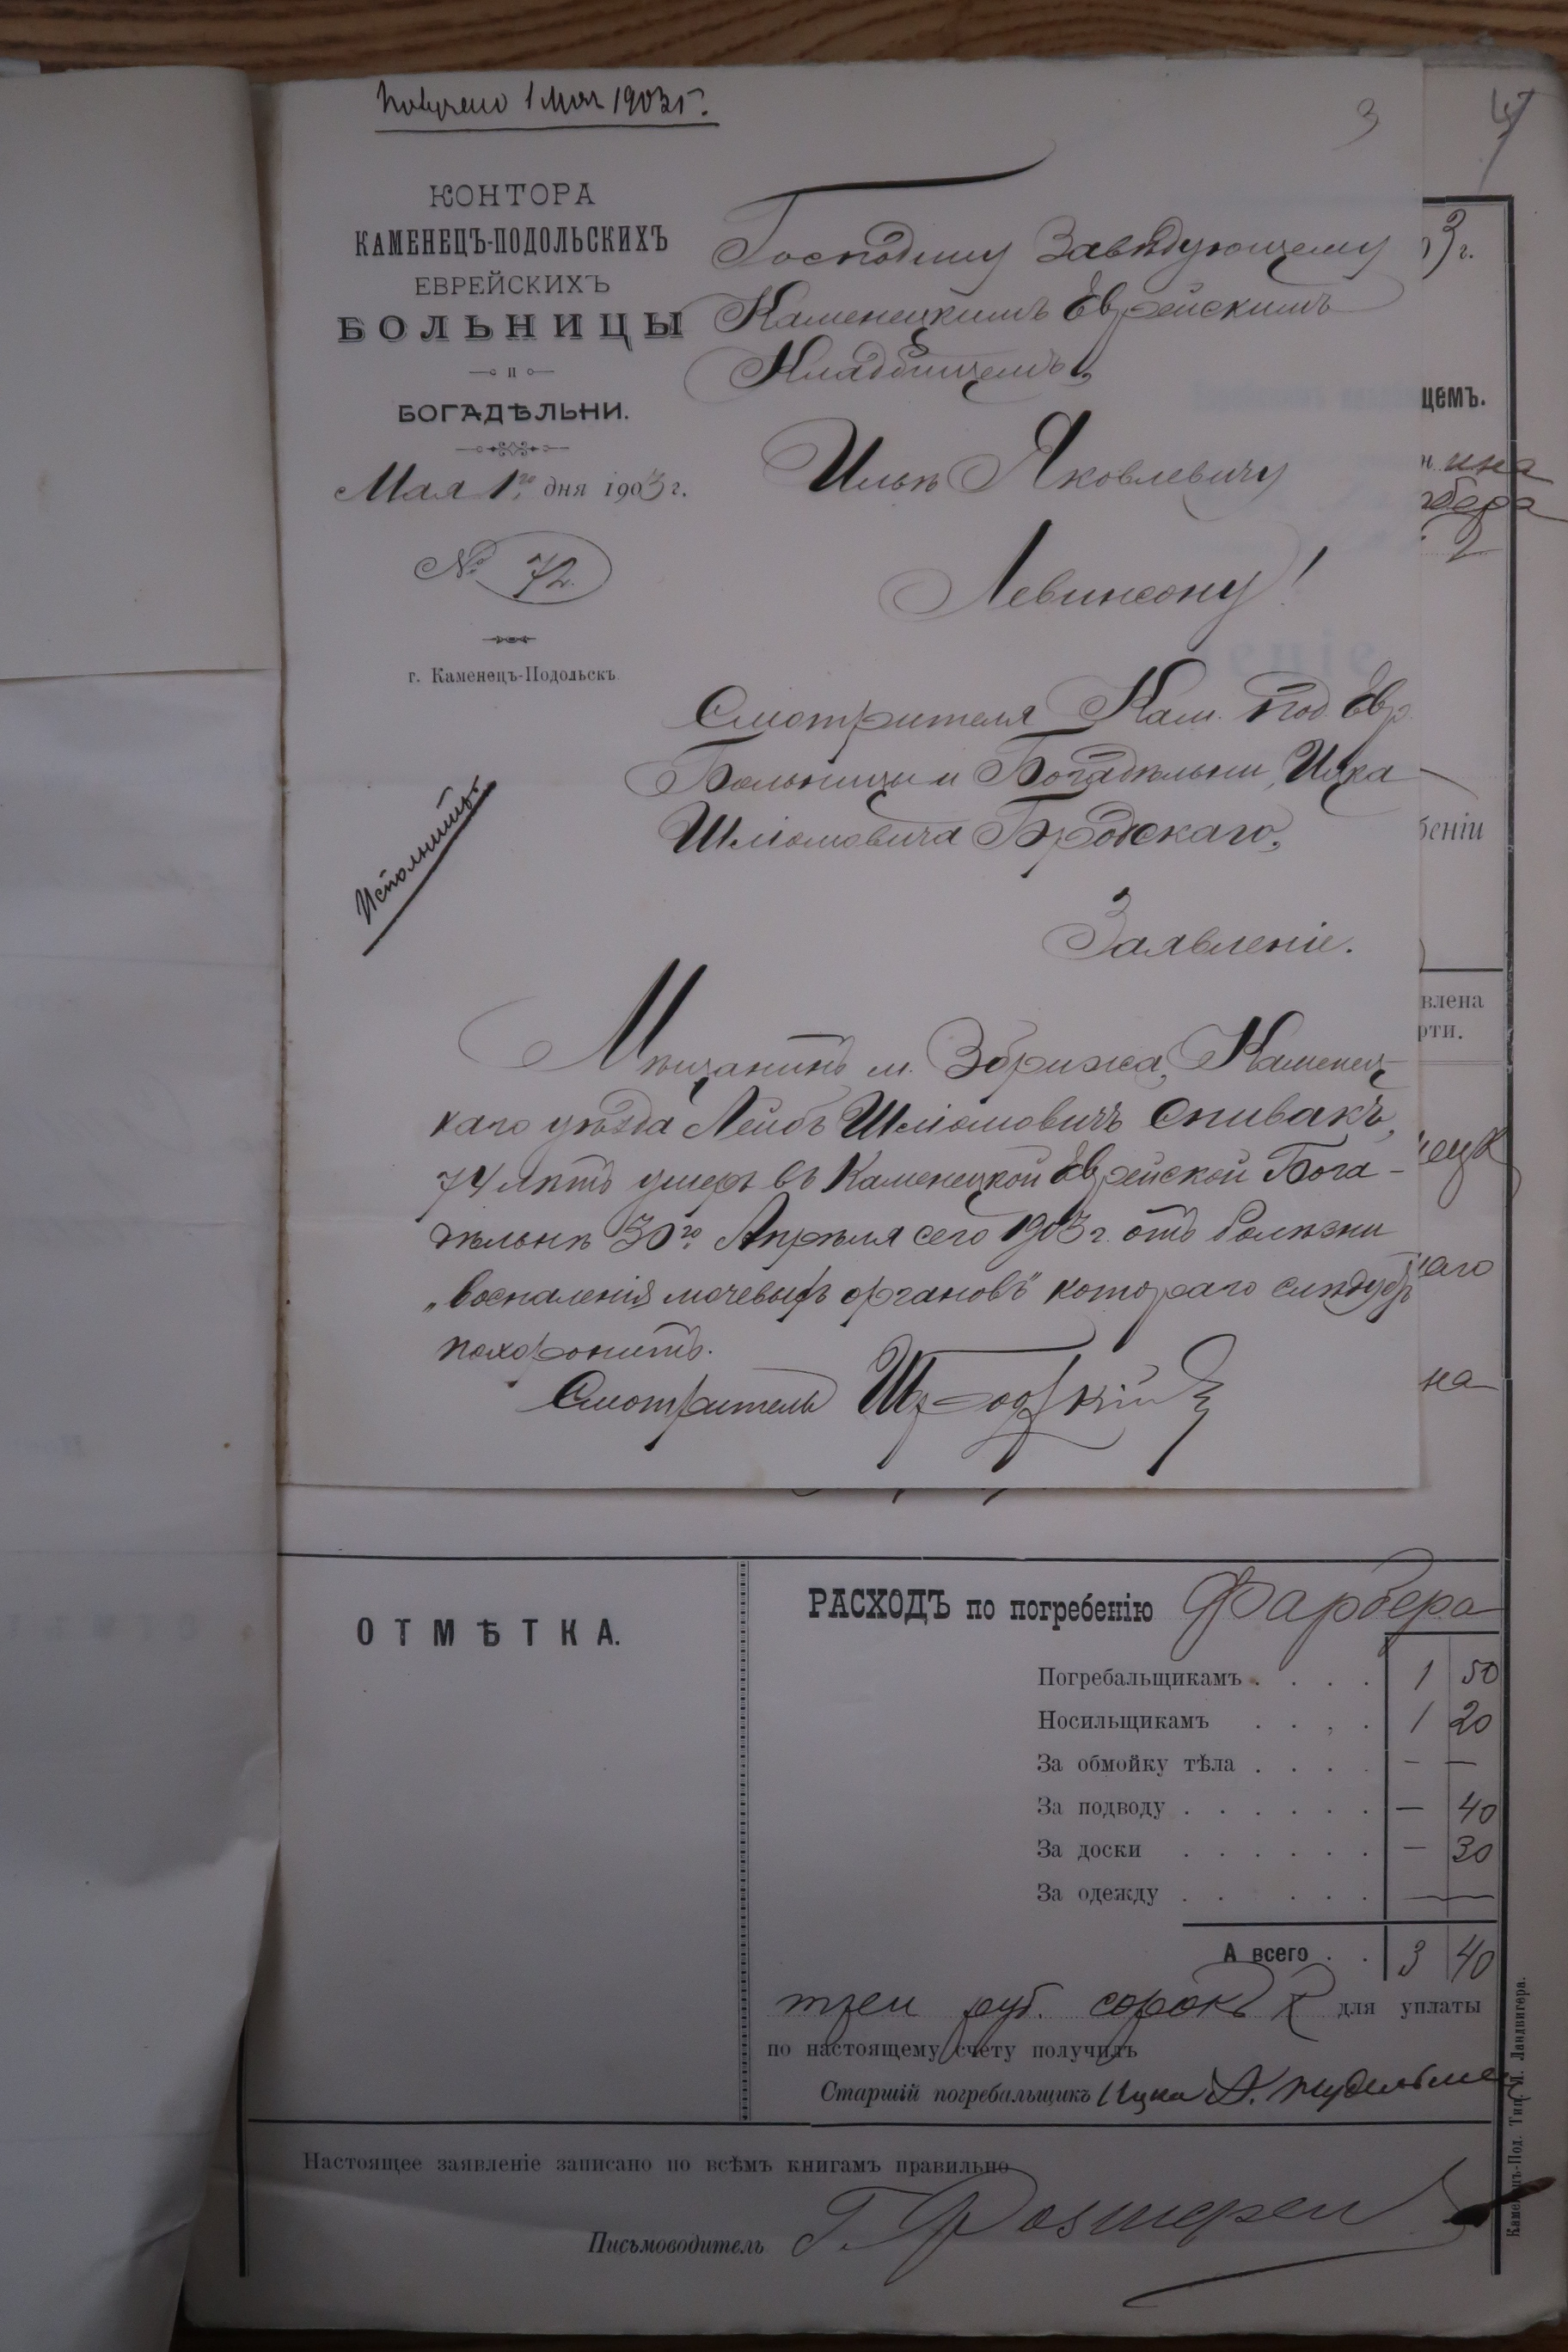 Получено 1 Мая 1903 г.
3
4
КОНТОРА
КАМЕНЕЦЪ-ПОДОЛЬСКИХЪ
ЕВРЕЙСКИХЪ
БОЛЬНИЦЫ
и
БОГАДѢЛЬНИ.
Мая 1го дня 1903 г.
№ 72.
г. Каменецъ-Подольскъ.
Господину Завѣдующему
Каменецкимъ Еврейскимъ
Кладбищемъ,
Ильѣ Яковлевичу
Левинсону!
Смотрителя Кам. Под. Евр.
Больницы и Богадѣльни, Ицка
Шліомовича Бродскаго,
Исполнить.
Заявленіе.
Мѣщанинъ м. Збрижа, Каменец-
каго уѣзда Лейбъ Шліомовичъ Спивакъ,
74 лѣтъ умеръ въ Каменецкой Еврейской Бога-
дѣльнѣ 30го Апрѣля сего 1903 г. отъ болѣзни
„воспаленія мочевыхъ органовъ" котораго слѣдуетъ
похоронить.
Смотритель
3 г.
щемъ.
ина
бера
беніи
влена
рти.
ецк
аго
на
ОТМѢТКА.
РАСХОДЪ по погребенію Фарбера
Погребальщикамъ . . . . 1 50
Носильщикамъ . . . . 1 20
За обмойку тѣла . . . . — —
За подводу . . . . . . — 40
За доски . . . . . . — 30
За одежду . . . . . ——
А всего . . 3 40
три руб. сорокъ к для уплаты
по настоящему счету получилъ
Старшій погребальщикъ Ицка
Настоящее заявленіе записано по всѣмъ книгамъ правильно
Письмоводитель Г.
Каменецъ-Под. Тип. Я. Ландвигера.